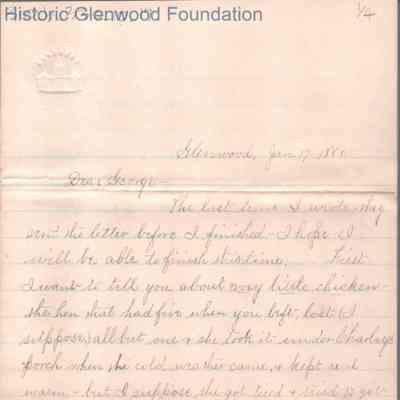 Historic Glenwood Foundation
1/4
Glenwood, Jan 17 188
Dear George—
The last time I wrote they
sent the letter before I finished - I hope I
will be able to finish this time. First
I want to tell you about my little chicken-
the hen that had five when you left, lost (I
suppose) all but one & she took it under Charleys
porch when the cold weather came, & kept it
warm - but I suppose she got tired & tried to get